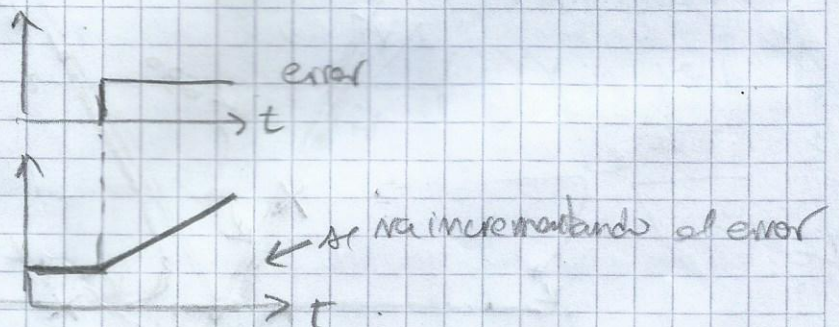 error
t
se va incrementando el error
t